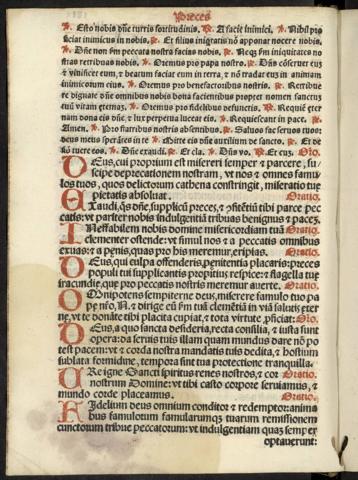 Preces
℣. Esto nobis dñe turris fortitudinis. ℟. A facie inimici. ℣. Nihil pro
ficiat inimicus in nobis. ℟. Et filius iniquitatis nõ apponat nocere nobis.
℣. Dñe non scðm peccata nostra facias nobis. ℟. Neqȝ scðm iniquitates no
stras retribuas nobis. ℣. Oremus pro papa nostro. ℟. Dñs cõseruet eum
et viuificet eum, et beatum faciat eum in terra, et nõ tradat eum in animam
inimicorum eius. ℣. Oremus pro benefactoribus nostris. ℟. Retribue
re dignare dñe omnibus nobis bona facientibus propter nomen sanctum
tuũ vitam eternaʒ. ℣. Oremus pro fidelibus defunctis. ℟. Requiẽ eter
nam dona eis dñe, et lux perpetua luceat eis. ℣. Requiescant in pace. ℟.
Amen. ℣. Pro fratribus nostris absentibus. ℟. Saluos fac seruos tuos:
deus meus sperãtes in te ℣. Mitte eis dñe auxilium de sancto. ℟. Et de
siõ tuere eos. ℣. Dñe exaudi. ℟. Et cla. ℣. Dñs vo. ℟. Et cuʒ. Oro.
DEus, cui proprium est misereri semper et parcere, su
scipe deprecationem nostram, vt nos et omnes famu
los tuos, quos delictorum cathena constringit, miseratio tue
pietatis absoluat. Oratio.
EXaudi, qs dñe, supplicũ preces, et cõfitẽtiũ tibi parce pec
catis: vt pariter nobis indulgentiã tribuas benignus et paceʒ.
INeffabilem nobis domine misericordiam tuã Oratio.
clementer ostende: vt simul nos et a peccatis omnibus
exuas: et a penis, quas pro his meremur, eripias. Oratio.
DEus, qui culpa offenderis, penitentia placaris: preces
populi tui supplicantis propitius respice: et flagella tue
iracundie, que pro peccatis nostris meremur auerte. Oratio.
OMnipotens sempiterne deus, miserere famulo tuo pa
pe nrõ, N. et dirige eũ scðm tuã clemẽtiã in viã salutis eter
ne, vt te donãte tibi placita cupiat, et tota virtute pficiat: Oro.
DEus, a quo sancta desideria, recta consilia, et iusta sunt
opera: da seruis tuis illam quam mundus dare nõ po
test pacem: vt et corda nostra mandatis tuis dedita, et hostium
sublata formidine, tempora sint tua protectione tranquilla.
URe igne Sancti spiritus renes nostros, et cor Oratio.
nostrum Domine: vt tibi casto corpore seruiamus, et
mundo corde placeamus. Oratio.
FIdelium deus omnium conditor et redemptor: anima
bus famulorum famularumque tuarum remissionem
cunctorum tribue peccatorum: vt indulgentiam quaʒ semper
optauerunt: